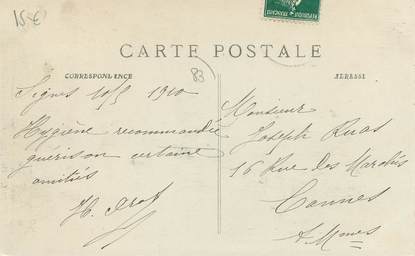 15€
CARTE POSTALE
CORRESPONDENCE
83
ADRESSE
Signes 10/5 1910
Hygiène recommandée
guérison certaine
amitiés
Monsieur
Joseph Ruas
16 Rue des Marchés
Cannes
A. Mmes